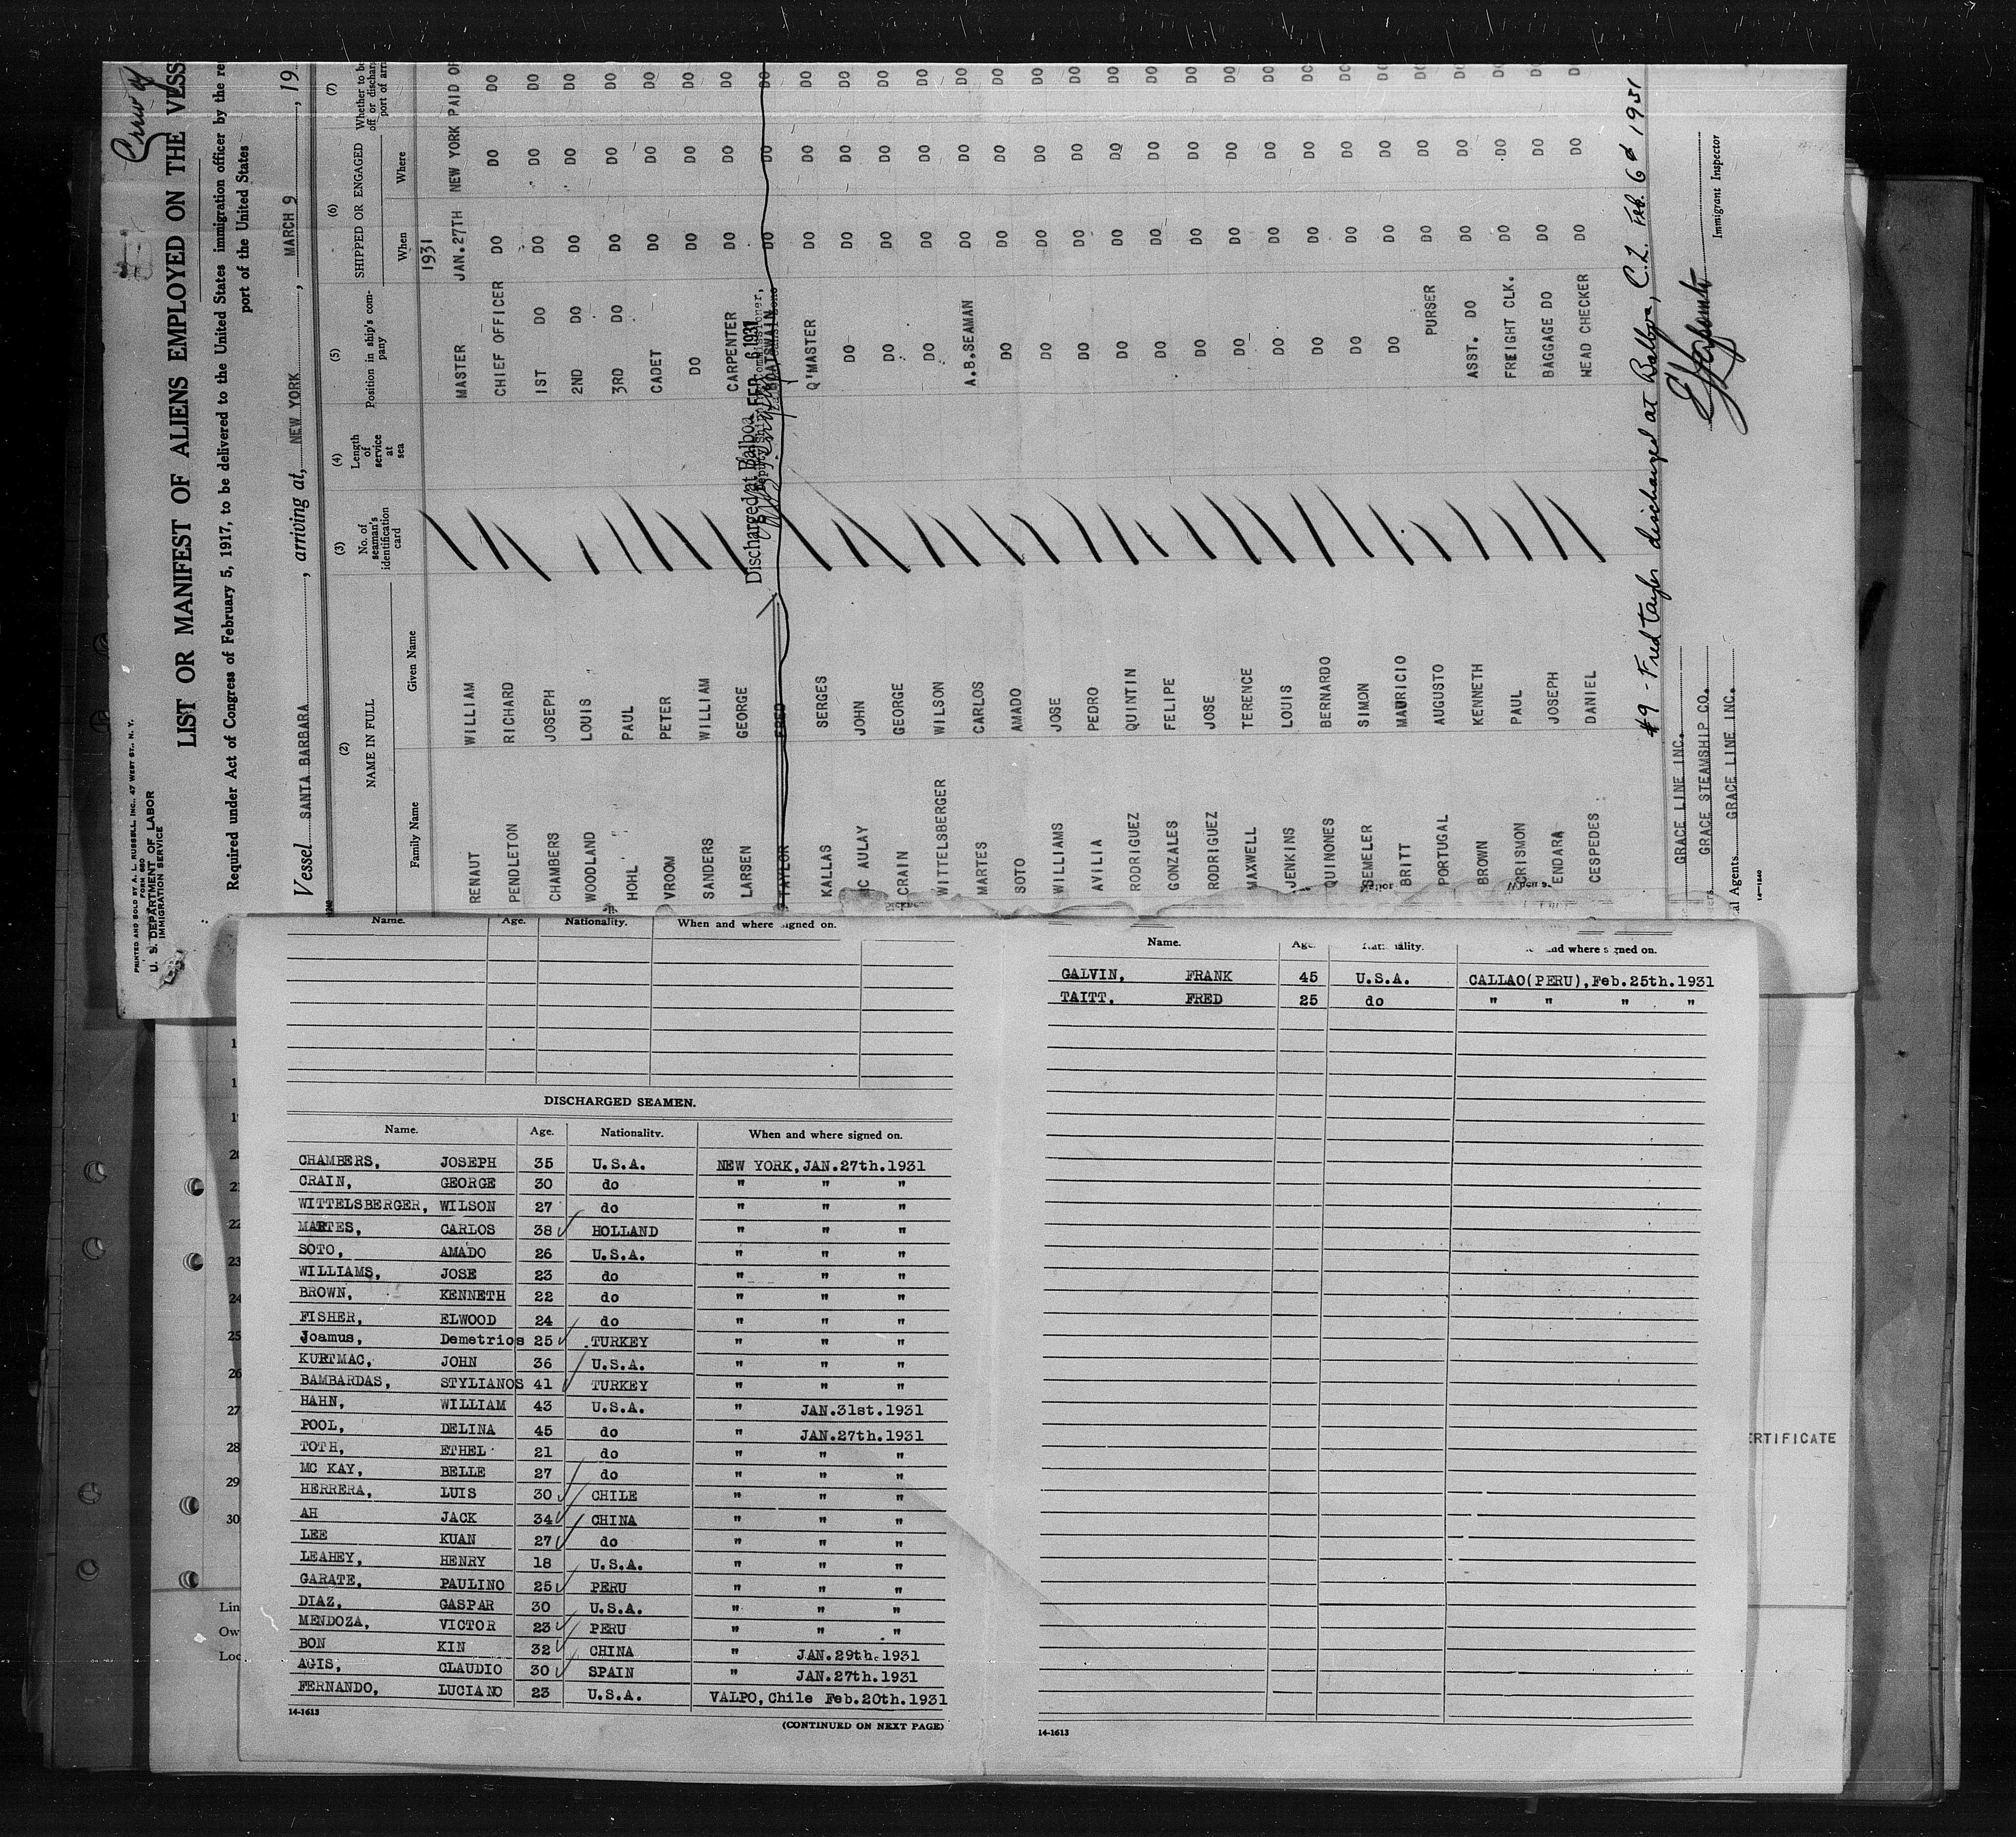 Crew of
PRINTED AND SOLD BY A. L. RUSSELL, INC., 47 WEST ST., N. Y.
FORM 680
U. S. DEPARTMENT OF LABOR
IMMIGRATION SERVICE
LIST OR MANIFEST OF ALIENS EMPLOYED ON THE VESS
Required under Act of Congress of February 5, 1917, to be delivered to the United States immigration officer by the re
port of the United States
Vessel SANTA BARBARA , arriving at, NEW YORK , MARCH 9 , 19
(2) (3) (4) (5) (6) (7)
NAME IN FULL No. of seaman's identification card Length of service at sea Position in ship's company SHIPPED OR ENGAGED Whether to be
off or dischar
port of arri
Family Name Given Name When Where
1931
RENAUT WILLIAM MASTER JAN.27TH NEW YORK PAID OF
PENDLETON RICHARD CHIEF OFFICER DO DO DO
CHAMBERS JOSEPH 1ST DO DO DO DO
WOODLAND LOUIS 2ND DO DO DO DO
HOHL PAUL 3RD DO DO DO DO
VROOM PETER CADET DO DO DO
SANDERS WILLIAM DO DO DO DO
LARSEN GEORGE CARPENTER DO DO DO
Discharged at Balboa FEB 6 1931
TAYLOR FRED BOATSWAIN DO DO DO
KALLAS SERGES Q'MASTER DO DO DO
MC AULAY JOHN DO DO DO DO
CRAIN GEORGE DO DO DO DO
WITTELSBERGER WILSON DO DO DO DO
MARTES CARLOS A.B.SEAMAN DO DO DO
SOTO AMADO DO DO DO DO
WILLIAMS JOSE DO DO DO DO
AVILIA PEDRO DO DO DO DO
RODRIGUEZ QUINTIN DO DO DO DO
GONZALES FELIPE DO DO DO DO
RODRIGUEZ JOSE DO DO DO DO
MAXWELL TERENCE DO DO DO DO
JENKINS LOUIS DO DO DO DO
QUINONES BERNARDO DO DO DO DO
SEMELER SIMON DO DO DO DO
BRITT MAURICIO DO DO DO DO
PORTUGAL AUGUSTO PURSER DO DO DO
BROWN KENNETH ASST. DO DO DO DO
CRISMON PAUL FREIGHT CLK. DO DO DO
ENDARA JOSEPH BAGGAGE DO DO DO DO
CESPEDES DANIEL HEAD CHECKER DO DO D
#9 - Fred Taylor discharged at Balboa, C.Z. Feb. 6th 1931
GRACE LINE INC.
GRACE STEAMSHIP CO.
al Agents GRACE LINE INC.
Immigrant Inspector
14-1240
Name. Age. Nationality. When and where signed on.
DISCHARGED SEAMEN.
Name. Age. Nationality. When and where signed on.
CHAMBERS, JOSEPH 35 U.S.A. NEW YORK, JAN.27th.1931
CRAIN, GEORGE 30 do " " "
WITTELSBERGER, WILSON 27 do " " "
MARTES, CARLOS 38 HOLLAND " " "
SOTO, AMADO 26 U.S.A. " " "
WILLIAMS, JOSE 23 do " " "
BROWN, KENNETH 22 do " " "
FISHER, ELWOOD 24 do " " "
Joamus, Demetrios 25 TURKEY " " "
KURTMAC, JOHN 36 U.S.A. " " "
BAMBARDAS, STYLIANOS 41 TURKEY " " "
HAHN, WILLIAM 43 U.S.A. " JAN.31st.1931
POOL, DELINA 45 do " JAN.27th.1931
TOTH, ETHEL 21 do " " "
MC KAY, BELLE 27 do " " "
HERRERA, LUIS 30 CHILE " " "
AH JACK 34 CHINA " " "
LEE KUAN 27 do " " "
LEAHEY, HENRY 18 U.S.A. " " "
GARATE, PAULINO 25 PERU " " "
DIAZ, GASPAR 30 U.S.A. " " "
MENDOZA, VICTOR 23 PERU " " "
BON KIN 32 CHINA " JAN.29th.1931
AGIS, CLAUDIO 30 SPAIN " JAN.27th.1931
FERNANDO, LUCIANO 23 U.S.A. VALPO, Chile Feb.20th.1931
14-1613
(CONTINUED ON NEXT PAGE)
Name. Age. Nationality. and where signed on.
GALVIN, FRANK 45 U.S.A. CALLAO(PERU), Feb.25th.1931
TAITT, FRED 25 do " " " "
14-1613
20
21
22
23
24
25
26
27
28
29
30
Lin
Ow
Loc
ERTIFICATE